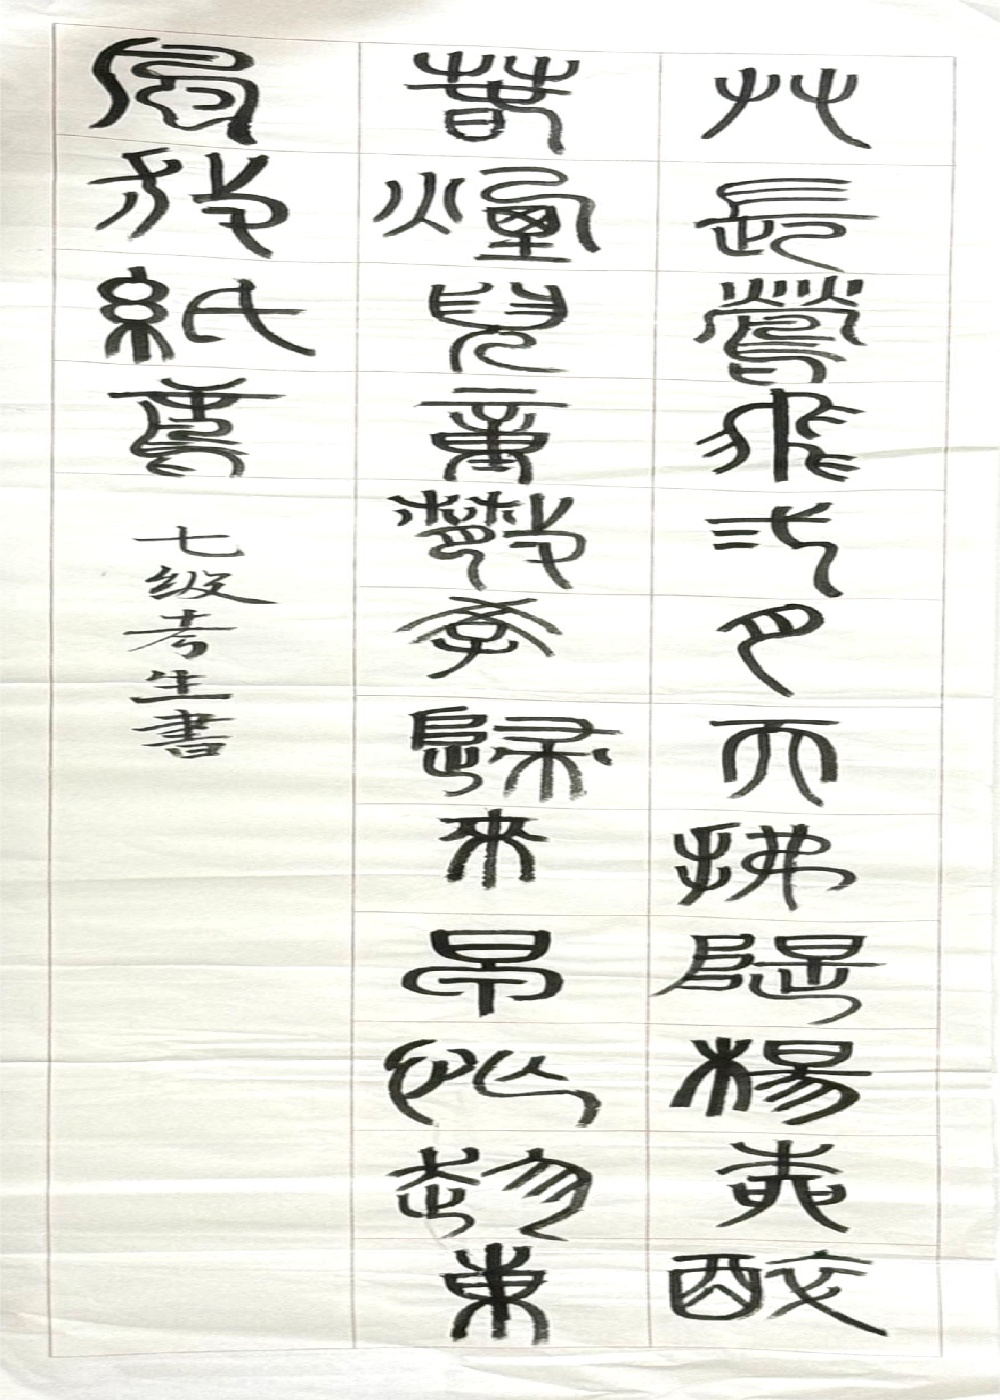 艸長鶯飛弍月天拂隄楊柳醉
春煙兒童散學歸來早忙趁東
風放紙鳶
七級考生書